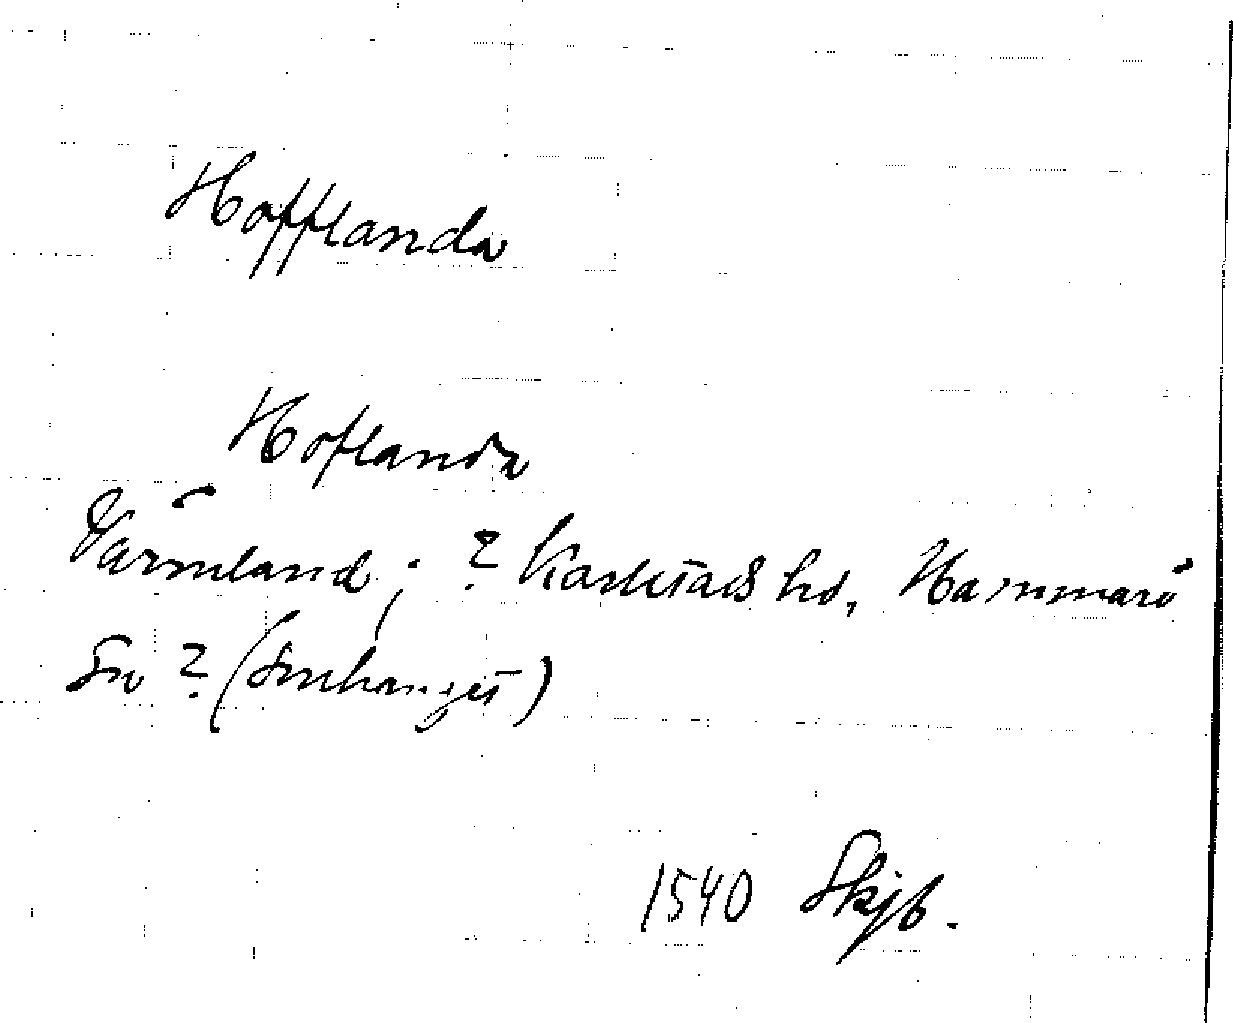 Hofflanda
Hoflanda
Värmland; ? Karlstads hd, Hammarö
sn ? (Omhänget)
1540 Skjb.